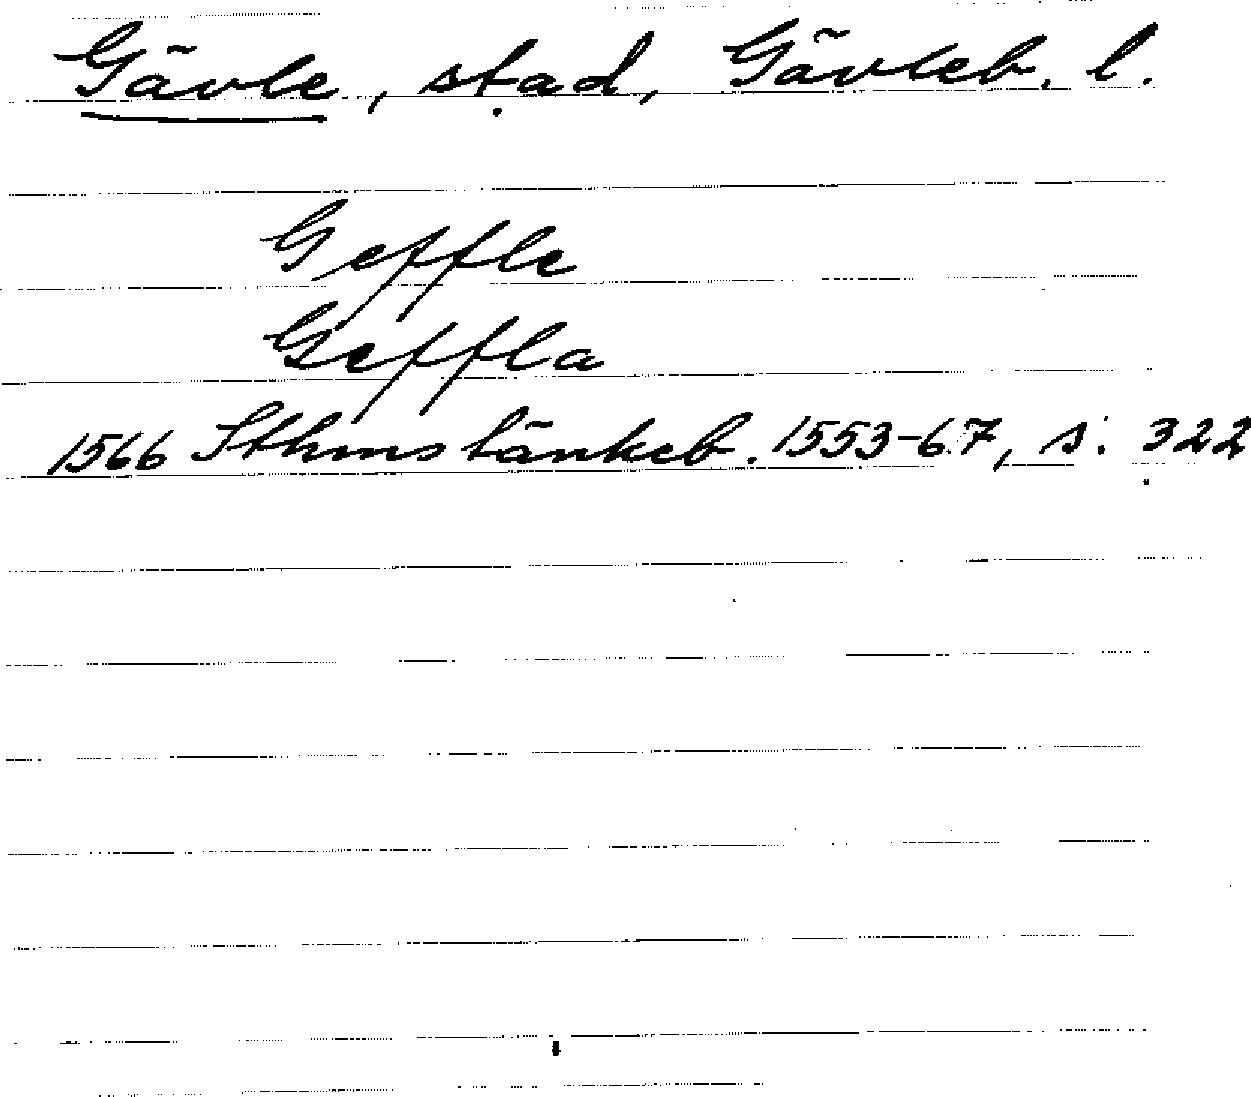 Gävle, stad, Gävleb. l.
Geffle
Geffla
1566 Sthms tänkeb. 1553-67, s. 322